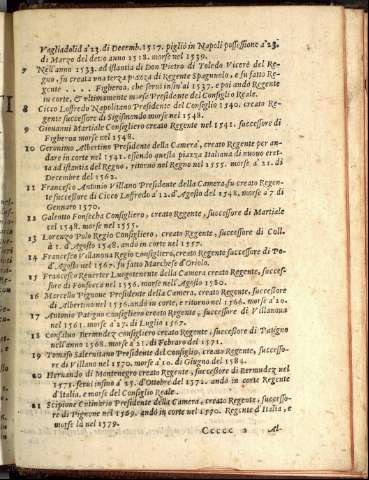 Vagliadolid a'23. di Decemb. 1517. pigliò in Napoli possissione a'23.
di Marzo del detto anno 1518. morse nel 1539.
7 Nell'anno 1533. ad istantia di Don Pietro di Toledo Vicerè del Re-
gno, fu creata una terza piazza di Regente Spagnuolo, e fu fatto Re-
gente . . . . Figheroa, che servì insin'al 1537. e poi andò Regente
in corte, & ultimamente morse Presidente del Consiglio Reale.
8 Cicco Loffredo Napolitano Presidente del Consiglio 1540. creato Re-
gente successore di Sigismondo morse nel 1548.
9 Giovanni Martiale Consigliero creato Regente nel 1541. successore di
Figheroa morse nel 1548.
10 Geronimo Albertino Presidente della Camera, creato Regente per an-
dare in corte nel 1541. essendo quella piazza Italiana di nuovo eret-
ta ad istantia del Regno, ritornò nel Regno nel 1555. morse a'21. di
Decembre del 1562.
11 Francesco Antonio Villano Presidente della Camera, fu creato Regen-
te successore di Cicco Loffredo a'12. d'Agosto del 1548. morse a'7 di
Gennaro 1570.
12 Galeotto Fonsecha Consigliero, creato Regente, successore di Martiale
nel 1548. morse nel 1555.
13 Lorenzo Polo Regio Consigliero, creato Regente, successore di Coll.
à 1. d'Agosto 1548. andò in corte nel 1557.
14 Francesco Villanova Regio Consigliero, creato Regente successore di Po-
d'Agosto nel 1567. fu fatto Marchese d'Oriolo.
15 Francesco Reverter Luogotenente della Camera creato Regente, succes-
sore di Fonseca nel 1556. morse nell'Agosto 1580.
16 Marcello Pignone Presidente della Camera, creato Regente, successore
di Albertino nel 1556. andò in corte, e ritornò nel 1566. morse a'20.
17 Antonio Patigno consigliero creato Regente, successore di Villanova
nel 1561. morse a'27. di Luglio 1567.
18 Consalvo Bermudez consigliero creato Regente, successore di Patigno
nell'anno 1568. morse a'21. di Febraro 1571.
19 Tomaso Salernitano Presidente del Consiglio, creato Regente, successo-
re di Villano nel 1570. morse a'10. di Giugno del 1584.
20 Hernando di Montenegro creato Regente, successore di Bermudez nel
1571. servì insino a'25. d'Ottobre del 1572. andò in corte Regente
d'Italia, e morse del Consiglio Reale.
21 Scipione Cutinario Presidente della Camera, creato Regente, successo-
re di Pignone nel 1569. andò in corte nel 1570. Regente d'Italia, e
morse là nel 1579.
Ccccc 2 Al-